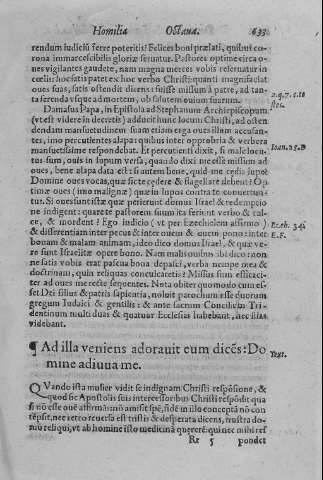 Homilia Octaua. 633
rendum iudiciũ ferre poteritis! Felices boni prælati, quibus co-
rona immarcescibilis gloriæ seruatur. Pastores optime circa o-
ues vigilantes gaudete, nam magna merces vobis reseruatur in
cœlis: hoc satis patet ex hoc verbo Christi: quanti magnifaciat
oues suas, satis ostendit dicens: suisse missum à patre, ad tan-
ta ferenda vsque ad mortem, ob salutem ouium suarum.
Damasus Papa, in Epistola ad Stephanum Archiepiscopum
2.q.7.c.18
(vt est videre in decretis) adducit hunc locum Christi, ad osten
dendam mansuetudinem suam etiam erga oues illum accusan-
tes, imo percutientes alapa: quibus inter opprobria & verbera
mansuetissime respondebat. Et percutienti dixit, si male locu-
Ioan.18.D
tus sum, ouis in lupum versa, quando dixi me esse missum ad
oues, bene alapa data est: si autem bene, quid me cędis lupe?
Domine oues vocas, quæ sic te cędere & flagellare debent! Op
timæ oues (imo malignæ) quæ in lupos contra te conuertun-
tur. Si oues sunt istæ quæ perierunt domus Israel & redemptio
ne indigent: quare te pastorem suum ita feriunt verbo & cal-
ce, & mordent? Ego iudico (vt per Ezechielem assirmo)
Ezech. 34
& differentiam inter pecus & inter ouem & ouem pono: inter
E.F.
bonam & malam animam, ideo dico domus Israel, & quæ ve-
re sunt Israelitæ opere bono. Nam malis ouibus ibi dico: non-
ne satis vobis erat pascua bona depasci, verba nempe mea &
doctrinam, quin reliquas conculcaretis? Missus sum efficaci-
ter ad oues me recte sequentes. Nota obiter quomodo cum es-
set Dei filius & patris sapientia, noluit parochum esse duorum
gregum Iudaici & gentilis: & ante sacrum Concilium Tri-
dentinum multi duas & quatuor Ecclesias habebant, nec illas
videbant.
¶ Ad illa veniens adorauit eum dicẽs: Do
Text.
mine adiuua me.
QVando ista mulier vidit se indignam Christi respõsione, &
quod sic Apostolis suis intercessoribus Christus respõdit qua
si nõ esse oue affirmãs: nõ amisit spẽ, fidẽ in illo conceptã nõ con
tẽpsit, nec retro reuersa est tristis & desperata dicens, frustra do-
mũ reliqui, vt ab homine isto medicinã quererẽ: qui nec mihi res
Rr 5 pondet